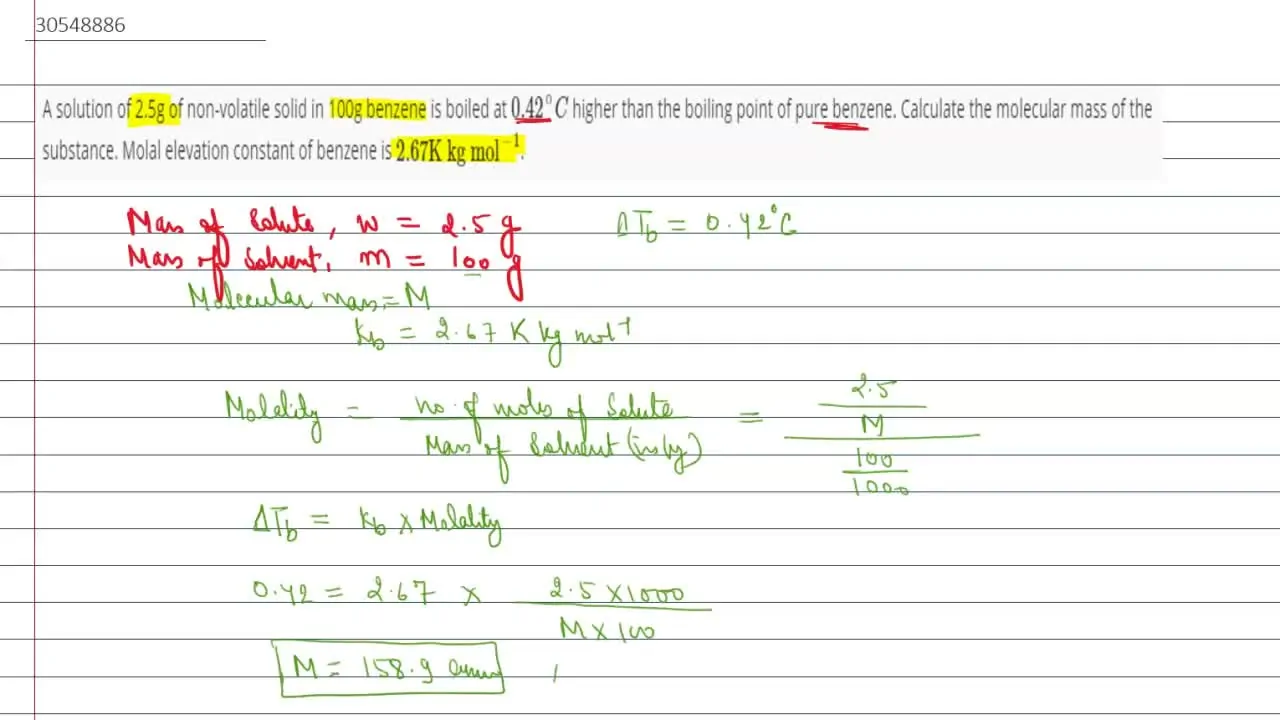 30548886
A solution of 2.5g of non-volatile solid in 100g benzene is boiled at 0.42°C higher than the boiling point of pure benzene. Calculate the molecular mass of the
substance. Molal elevation constant of benzene is 2.67K kg mol⁻¹.
Mass of Solute, w = 2.5 g ΔTb = 0.42°C
Mass of Solvent, m = 100 g
Molecular mass = M
Kb = 2.67 K kg mol⁻¹
Molality = no. of moles of Solute / Mass of Solvent (in kg) = 2.5 / M / 100 / 1000
ΔTb = Kb × Molality
0.42 = 2.67 × 2.5 × 1000 / M × 100
M = 158.9 amu